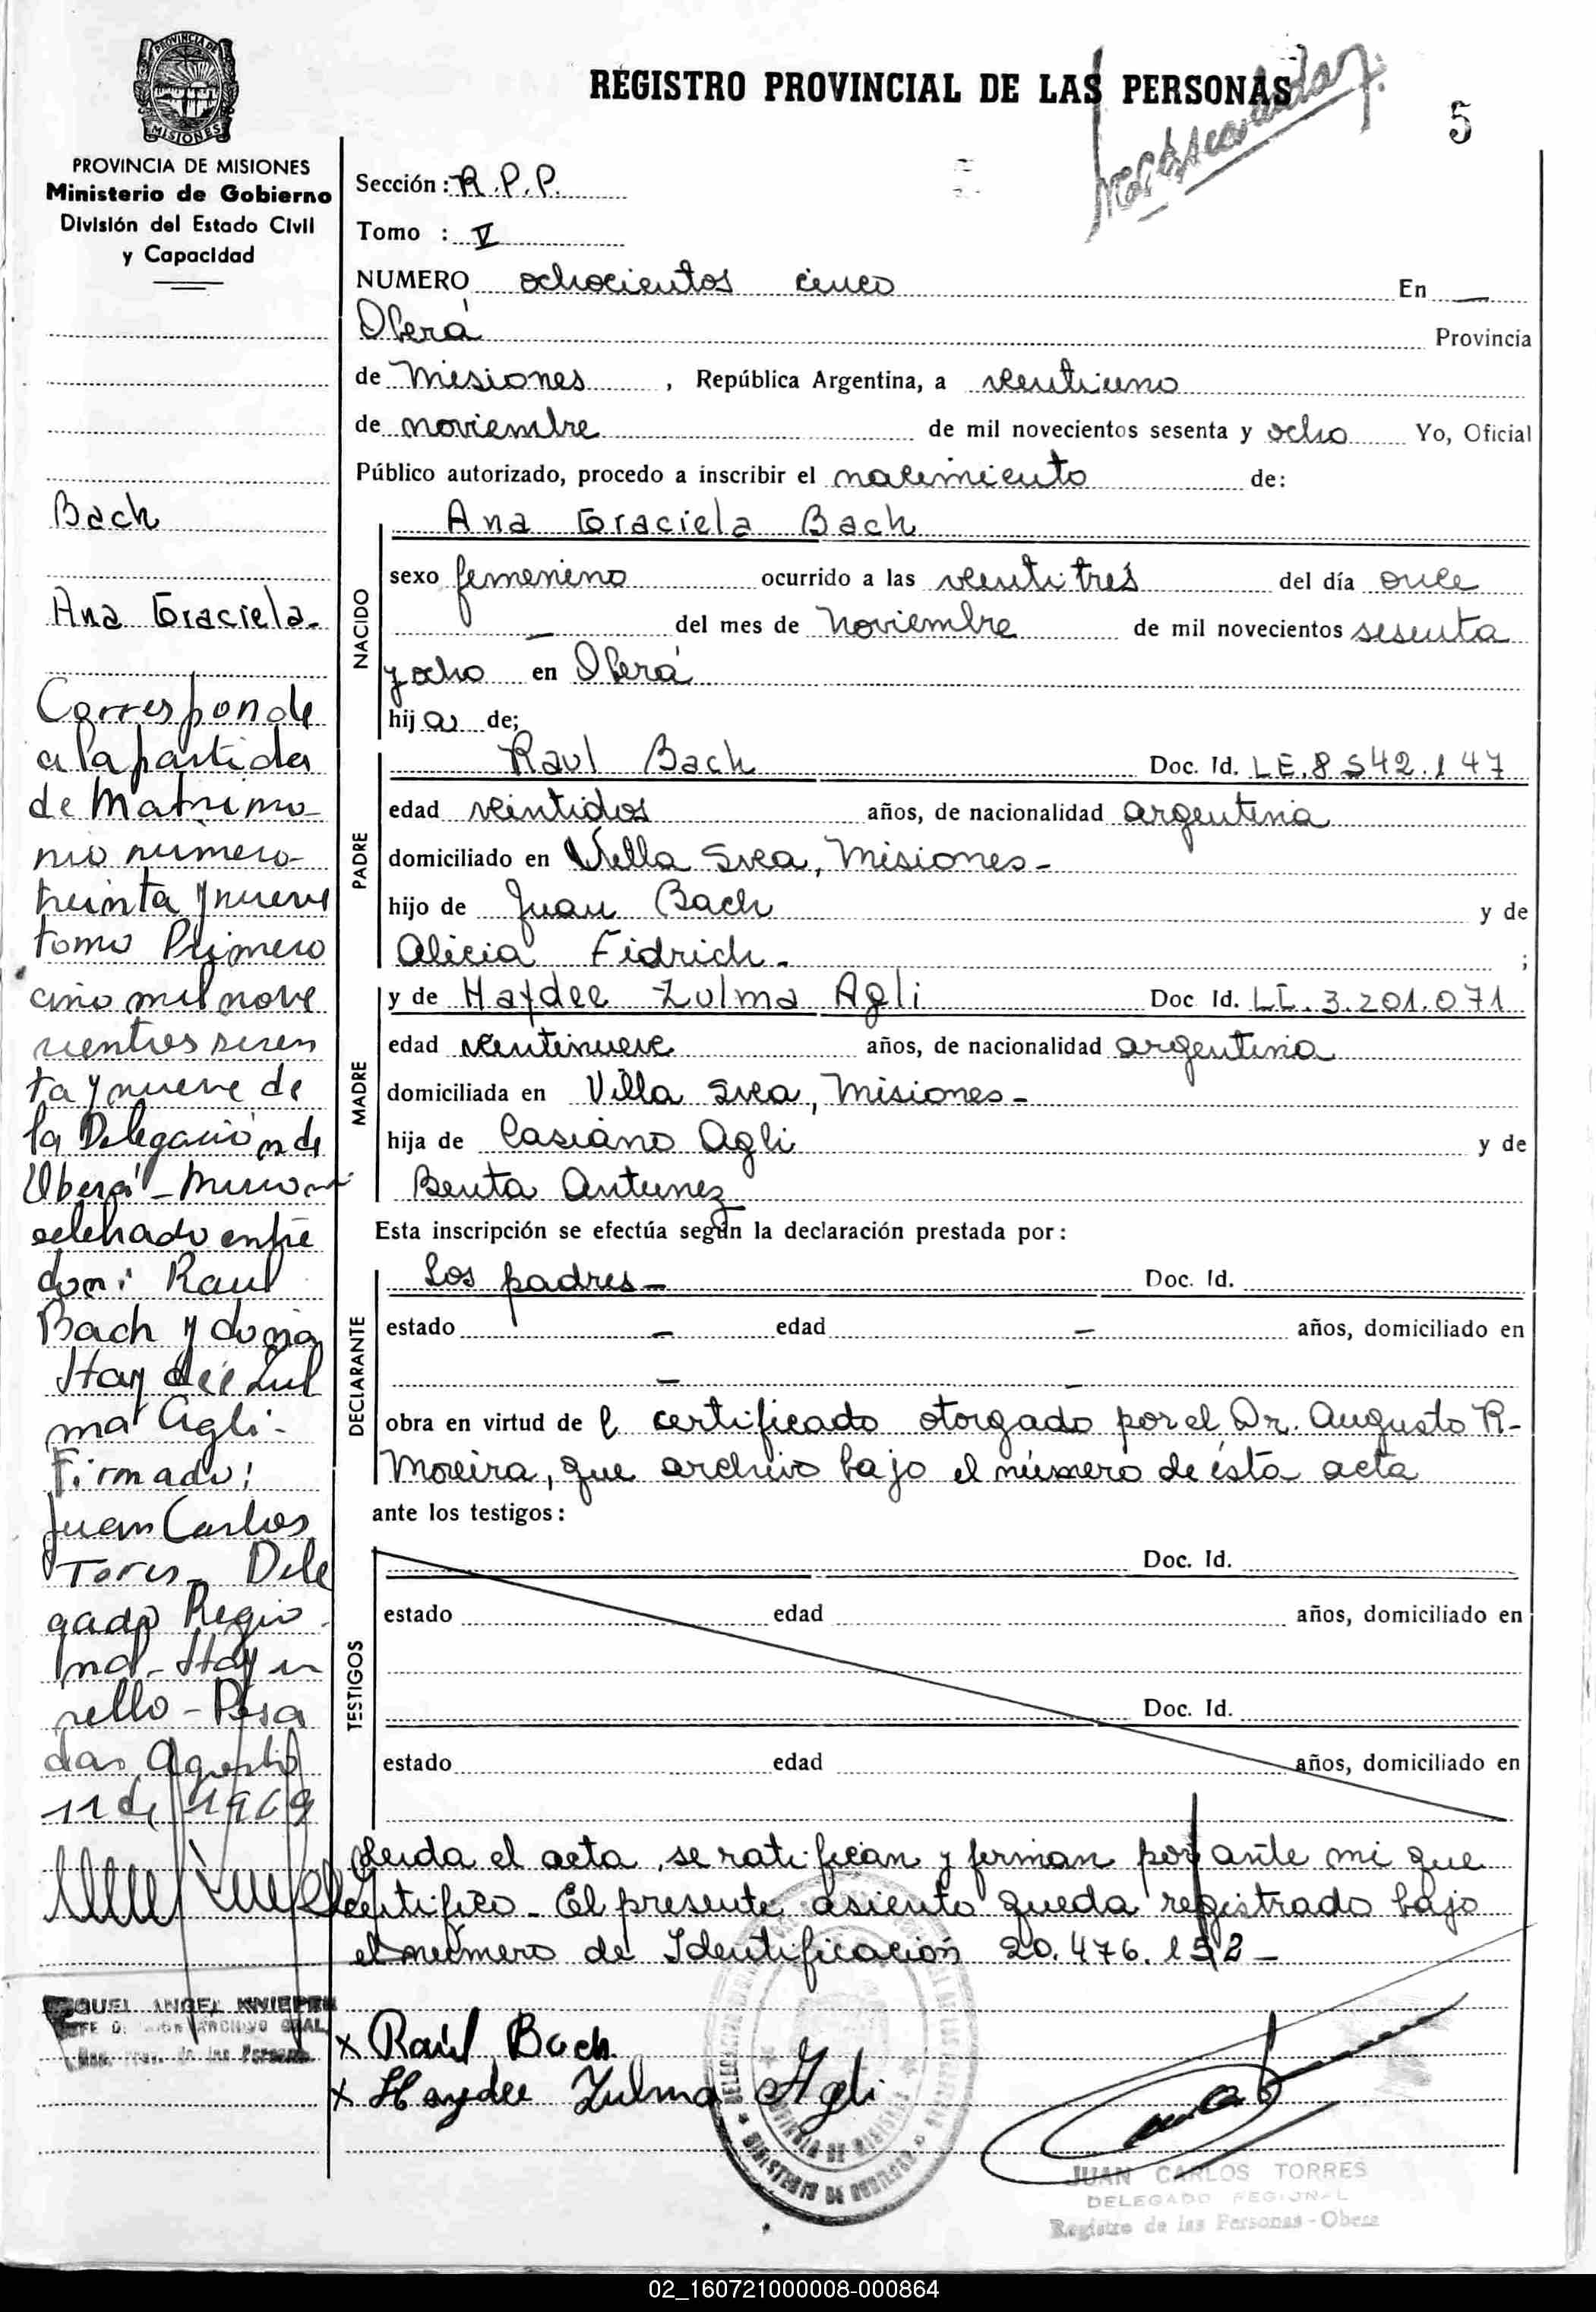 PROVINCIA DE MISIONES
PROVINCIA DE MISIONES
Ministerio de Gobierno
División del Estado Civil
y Capacidad
REGISTRO PROVINCIAL DE LAS PERSONAS
5
Sección: R.P.P.
Tomo : V
NUMERO ochocientos cinco En —
Oberá Provincia
de Misiones, República Argentina, a ventiuno
de noviembre de mil novecientos sesenta y ocho Yo, Oficial
Público autorizado, procedo a inscribir el nacimiento de:
NACIDO
Ana Graciela Bach
sexo femenino ocurrido a las ventitres del día once
— del mes de Noviembre de mil novecientos sesenta
y ocho en Oberá
hija de;
PADRE
Raul Bach Doc. Id. LE.8542.147
edad veintidos años, de nacionalidad argentina
domiciliado en Villa Svea, Misiones-
hijo de Juan Bach y de
Alicia Fidrich- ;
MADRE
y de Haydee Zulma Agli Doc Id. LC.3.201.071
edad ventinueve años, de nacionalidad argentina
domiciliada en Villa Svea, Misiones-
hija de Casiano Agli y de
Benta Antunez
Esta inscripción se efectúa según la declaración prestada por:
DECLARANTE
Los padres- Doc. Id.
estado — edad — años, domiciliado en
— —
obra en virtud del certificado otorgado por el Dr. Augusto R-
Moreira, que archivo bajo el número de ésta acta
ante los testigos:
TESTIGOS
Doc. Id.
estado edad años, domiciliado en
Doc. Id.
estado edad años, domiciliado en
Leida el acta, se ratifican y firman por ante mi que
certifico- El presente asiento queda registrado bajo
el número de Identificación 20.476.152-
x Raúl Bach.
x Haydee Zulma Agli
JUAN CARLOS TORRES
DELEGADO REGIONAL
Registro de las Personas - Obera
Bach
Ana Graciela-
Corresponde
a la partida
de Matrimo-
nio número-
treinta y nueve
tomo Primero
año mil nove
cientos sesen
ta y nueve de
la Delegación de
Oberá-Misiones
celebrado entre
don: Raul
Bach y doña
Haydeé Zul
ma Agli-
Firmado:
Juan Carlos
Torres- Dele
gado Regio
nal- Hay un
sello- Posa
das Agosto
11 de 1969
MIGUEL ANGEL
JEFE DIVISION ARCHIVO GRAL
Reg. Prov. de las Personas
02_160721000008-000864